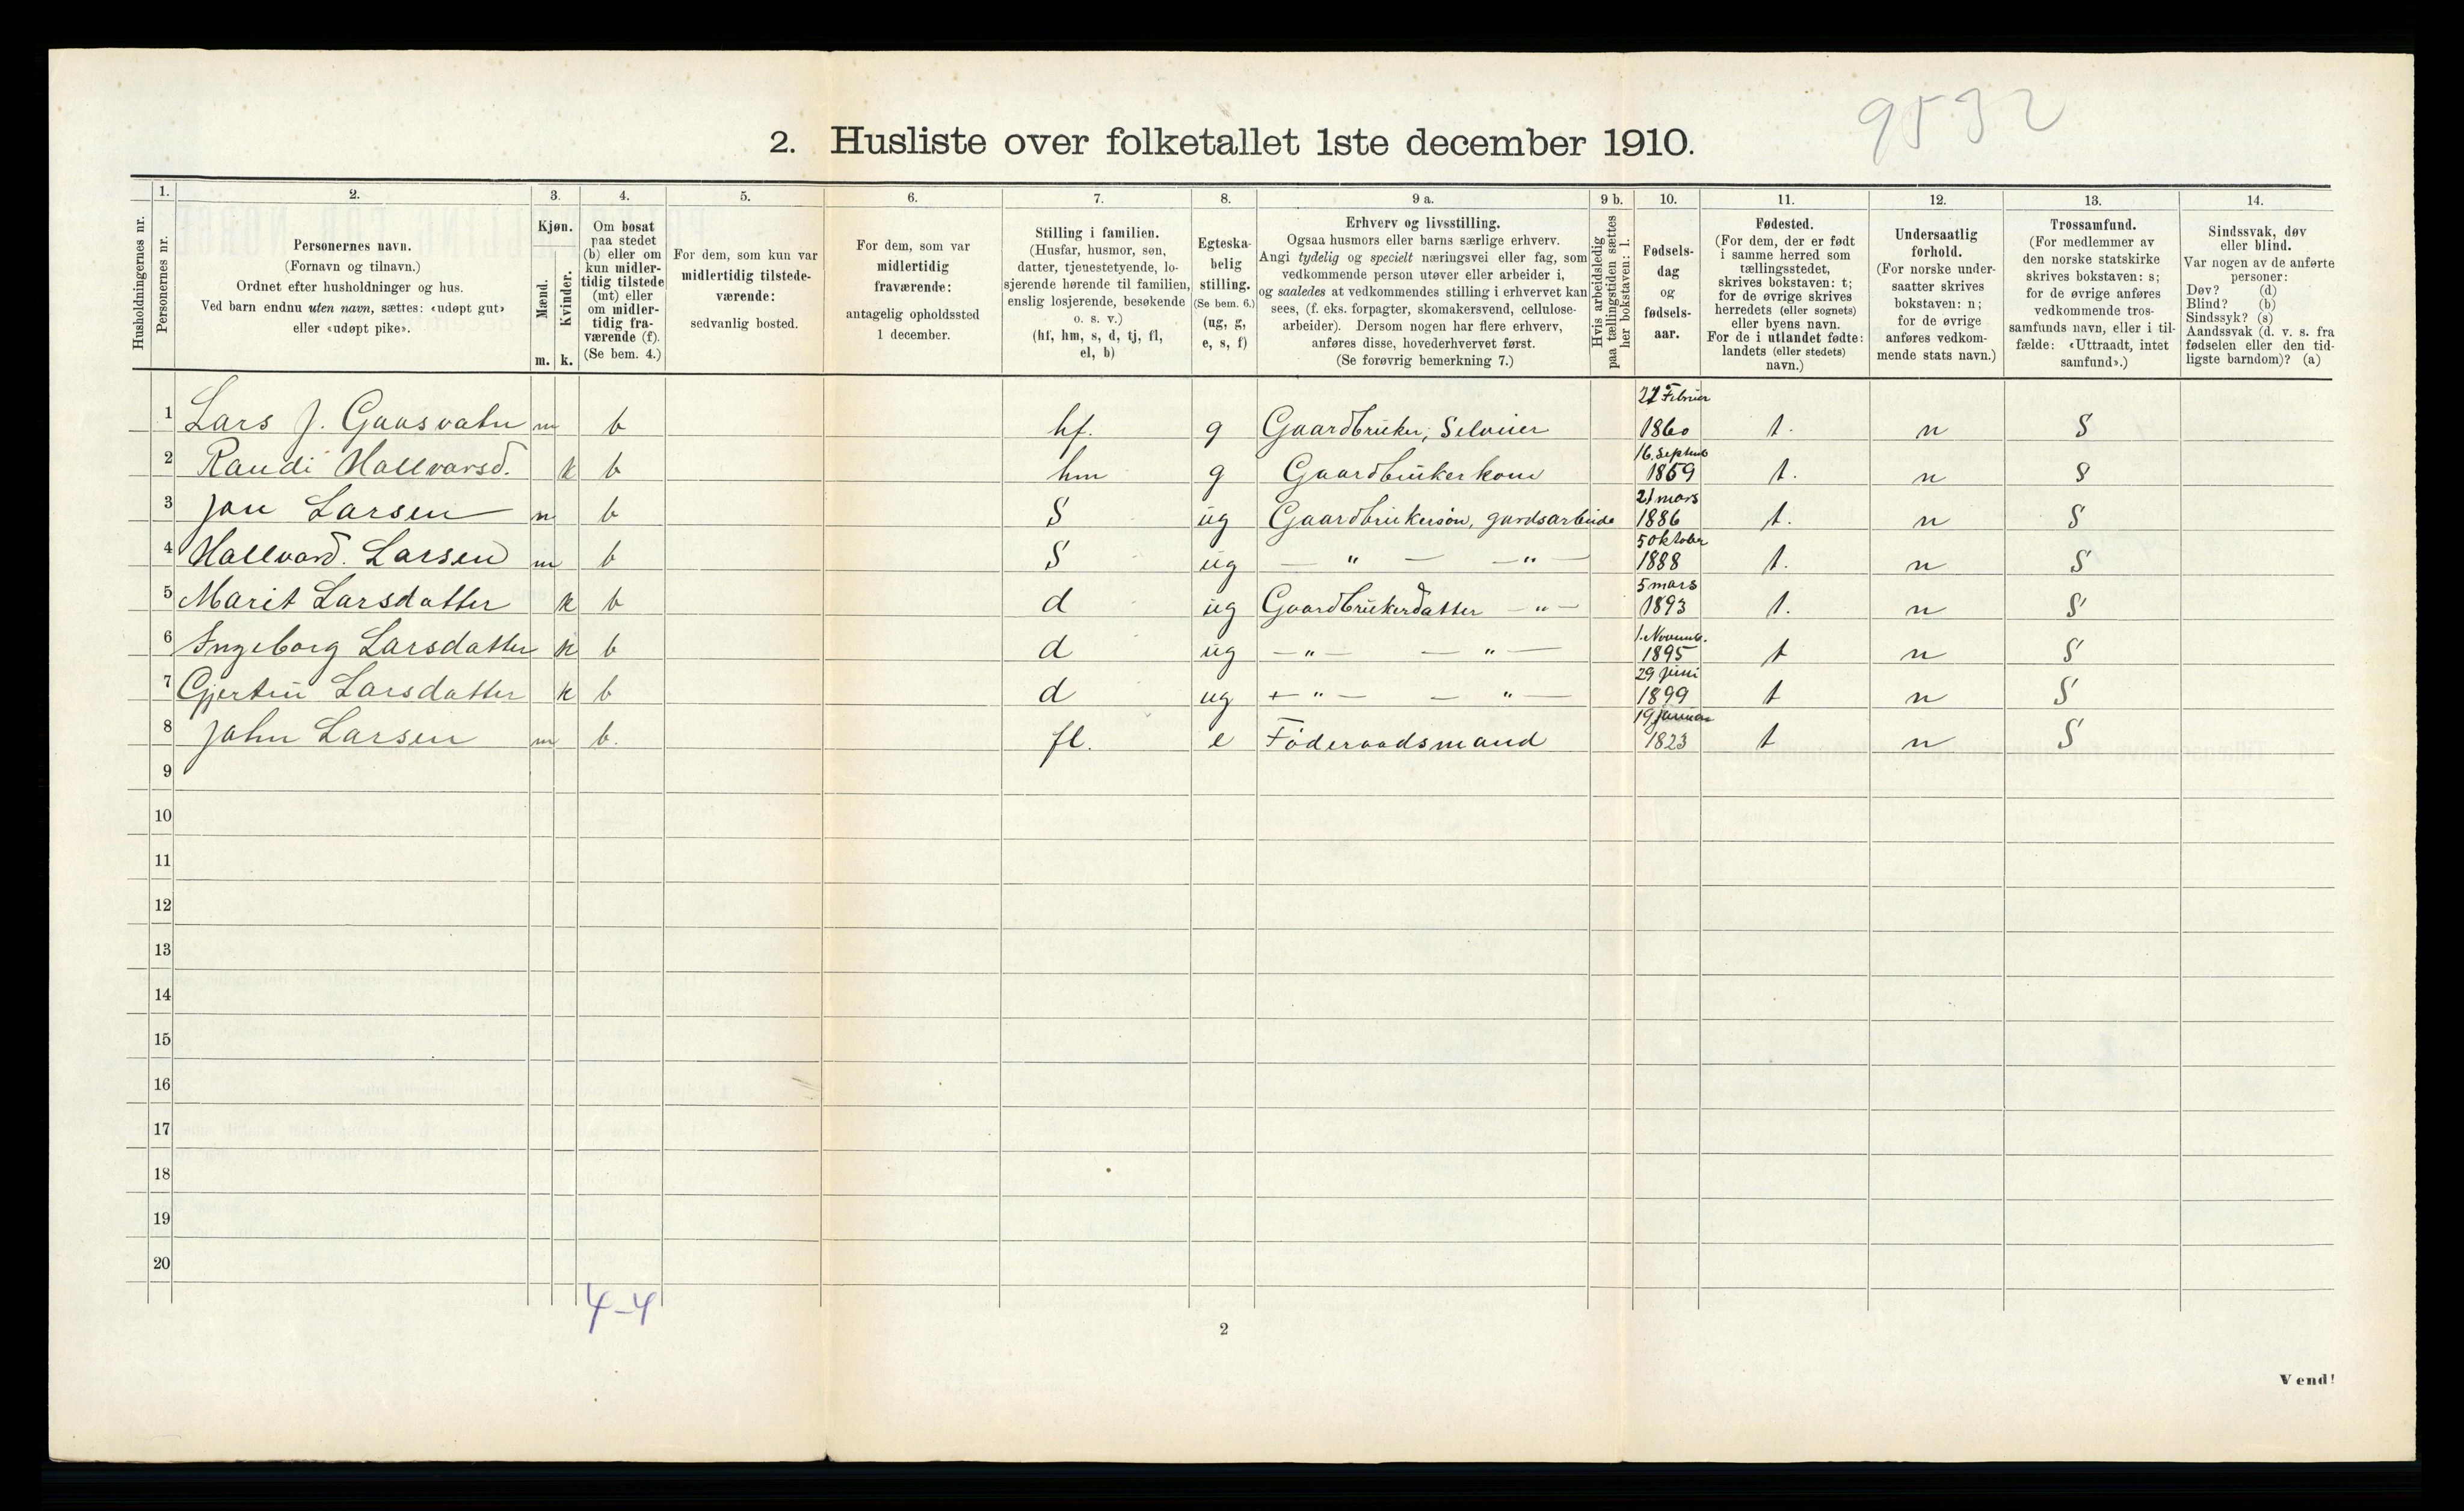 9532
2. Husliste over folketallet 1ste december 1910.
Husholdningernes nr.
1.
Personernes nr.
2.
Personernes navn.
(Fornavn og tilnavn.)
Ordnet efter husholdninger og hus.
Ved barn endnu uten navn, sættes: «udøpt gut»
eller «udøpt pike».
3.
Kjøn.
Mænd.
Kvinder.
m. k.
4.
Om bosat
paa stedet
(b) eller om
kun midler-
tidig tilstede
(mt) eller
om midler-
tidig fra-
værende (f).
(Se bem. 4.)
5.
For dem, som kun var
midlertidig tilstede-
værende:
sedvanlig bosted.
6.
For dem, som var
midlertidig
fraværende:
antagelig opholdssted
1 december.
7.
Stilling i familien.
(Husfar, husmor, søn,
datter, tjenestetyende, lo-
sjerende hørende til familien,
enslig losjerende, besøkende
o. s. v.)
(hf, hm, s, d, tj, fl,
el, b)
8.
Egteska-
belig
stilling.
(Se bem. 6.)
(ug, g,
e, s, f)
9 a.
Erhverv og livsstilling.
Ogsaa husmors eller barns særlige erhverv.
Angi tydelig og specielt næringsvei eller fag, som
vedkommende person utøver eller arbeider i,
og saaledes at vedkommendes stilling i erhvervet kan
sees, (f. eks. forpagter, skomakersvend, cellulose-
arbeider). Dersom nogen har flere erhverv,
anføres disse, hovederhvervet først.
(Se forøvrig bemerkning 7.)
9 b.
Hvis arbeidsledig
paa tællingstiden sættes
her bokstaven: l.
10.
Fødsels-
dag
og
fødsels-
aar.
11.
Fødested.
(For dem, der er født
i samme herred som
tællingsstedet,
skrives bokstaven: t;
for de øvrige skrives
herredets (eller sognets)
eller byens navn.
For de i utlandet fødte:
landets (eller stedets)
navn.)
12.
Undersaatlig
forhold.
(For norske under-
saatter skrives
bokstaven: n;
for de øvrige
anføres vedkom-
mende stats navn.)
13.
Trossamfund.
(For medlemmer av
den norske statskirke
skrives bokstaven: s;
for de øvrige anføres
vedkommende tros-
samfunds navn, eller i til-
fælde: «Uttraadt, intet
samfund».)
14.
Sindssvak, døv
eller blind.
Var nogen av de anførte
personer:
Døv? (d)
Blind? (b)
Sindssyk? (s)
Aandssvak (d. v. s. fra
fødselen eller den tid-
ligste barndom)? (a)
1 Lars J. Gaasvatn m b hf. g Gaardbruker, Selveier Februar 1860 t. n S
2 Randi Hallvarsd. k b hm g Gaardbrukerkone 16. Septemb 1859 t. n S
3 Jon Larsen m b S ug Gaardbrukersøn, gardsarbeide 21 mars 1886 t. n S
4 Hallvard. Larsen m b S ug — " — — " — 5 oktober 1888 t. n S
5 Marit Larsdatter k b d ug Gaardbrukerdatter — " — 5 mars 1893 t. n S
6 Ingeborg Larsdatter k b d ug — " — — " — 1. Novemb. 1895 t n S
7 Gjertrui Larsdatter k b d ug — " — — " — 29 juni 1899 t n S
8 John Larsen m b. fl. e Föderaadsmand 19 januar 1823 t n S
9
10
11
12
13
14
15
16
17
18
19
20
4–4
2
Vend!